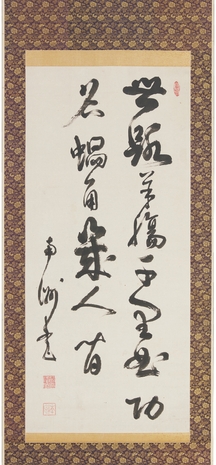 世路羊腸千里曲功
名蝸角幾人皆
南洲書